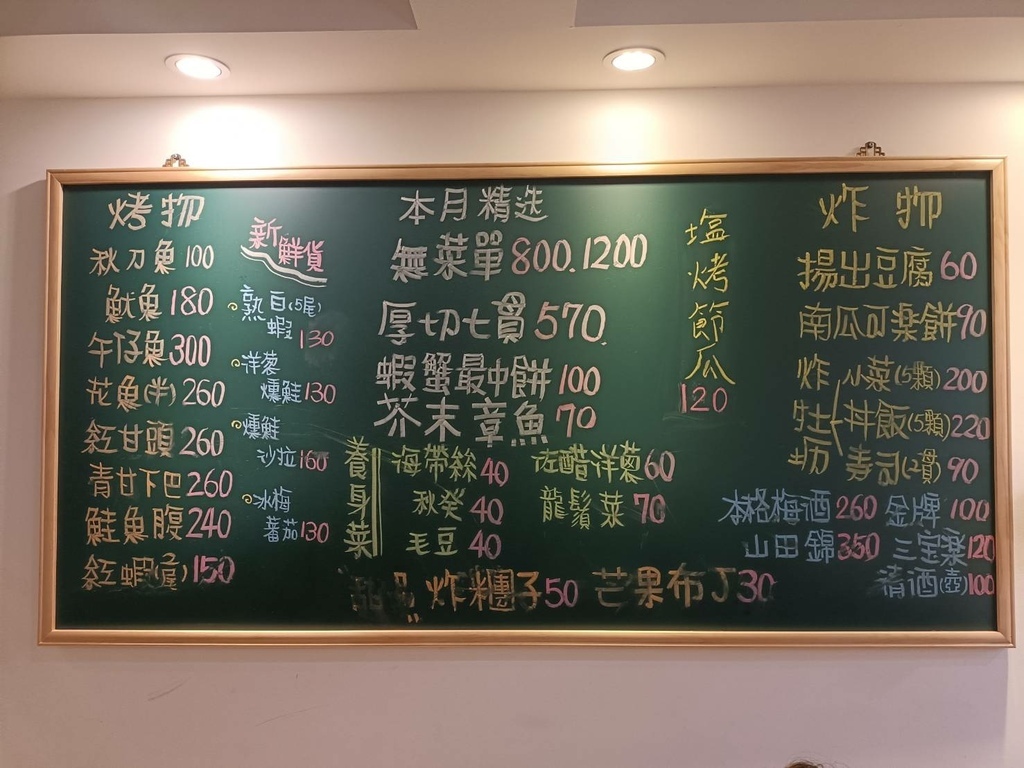 烤物
秋刀魚100
魷魚180
午仔魚300
花魚(半)260
紅甘頭260
青甘下巴260
鮭魚腹240
紅蝦(隻)150
新鮮貨
熟白(5尾)
蝦130
洋葱
燻鮭130
燻鮭
沙拉160
冰梅
蕃茄130
本月精选
無菜單800.1200
厚切七貫570
蝦蟹最中餅100
芥末章魚70
塩烤節瓜
120
養身菜
海帶絲40
秋癸40
毛豆40
佐醋洋蔥60
龍鬚菜70
炸糰子50
芒果布丁30
炸物
揚出豆腐60
南瓜可樂餅90
炸牡蛎
小菜(5顆)200
丼飯(5顆)220
壽司(2貫)90
本格梅酒260
山田錦350
金牌100
三宝楽120
清酒(壺)100